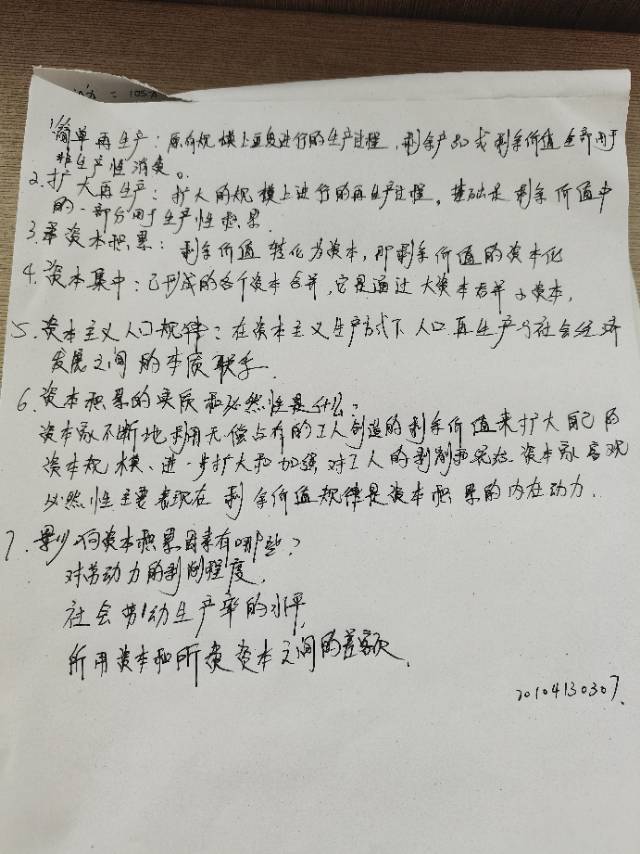 1简单再生产：原有规模上重复进行的生产过程，剩余产品或剩余价值全部用于
非生产性消费。
2.扩大再生产：扩大的规模上进行的再生产过程。基础是剩余价值中
的一部分用于生产性积累.
3.资本积累：剩余价值转化为资本，即剩余价值的资本化
4.资本集中：已形成的各个资本合并，它是通过大资本吞并小资本.
5.资本主义人口规律：在资本主义生产方式下人口再生产与社会经济
发展之间的本质联系.
6.资本积累的实质和必然性是什么？
资本家不断地利用无偿占有的工人创造的剩余价值来扩大自己的
资本规模、进一步扩大和加强对工人的剥削和统治.资本家客观
必然性主要表现在剩余价值规律是资本积累的内在动力.
7.影响资本积累因素有哪些？
对劳动力的剥削程度.
社会劳动生产率的水平.
所用资本和所费资本之间的差额.
20104130307.